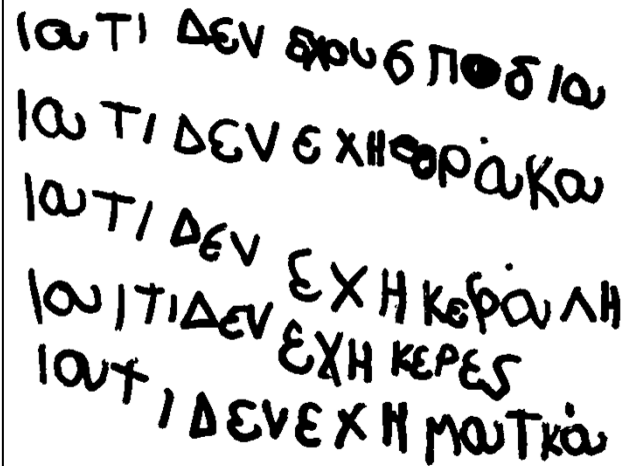 ιατι ΔΕν εχουσ ποδια
ιατι ΔΕν ε χη φράκα
ιατι Δεν εχη κεφάλη
ια ιτι Δεν εχη κερες
ιατ ι Δενεχη ματκά